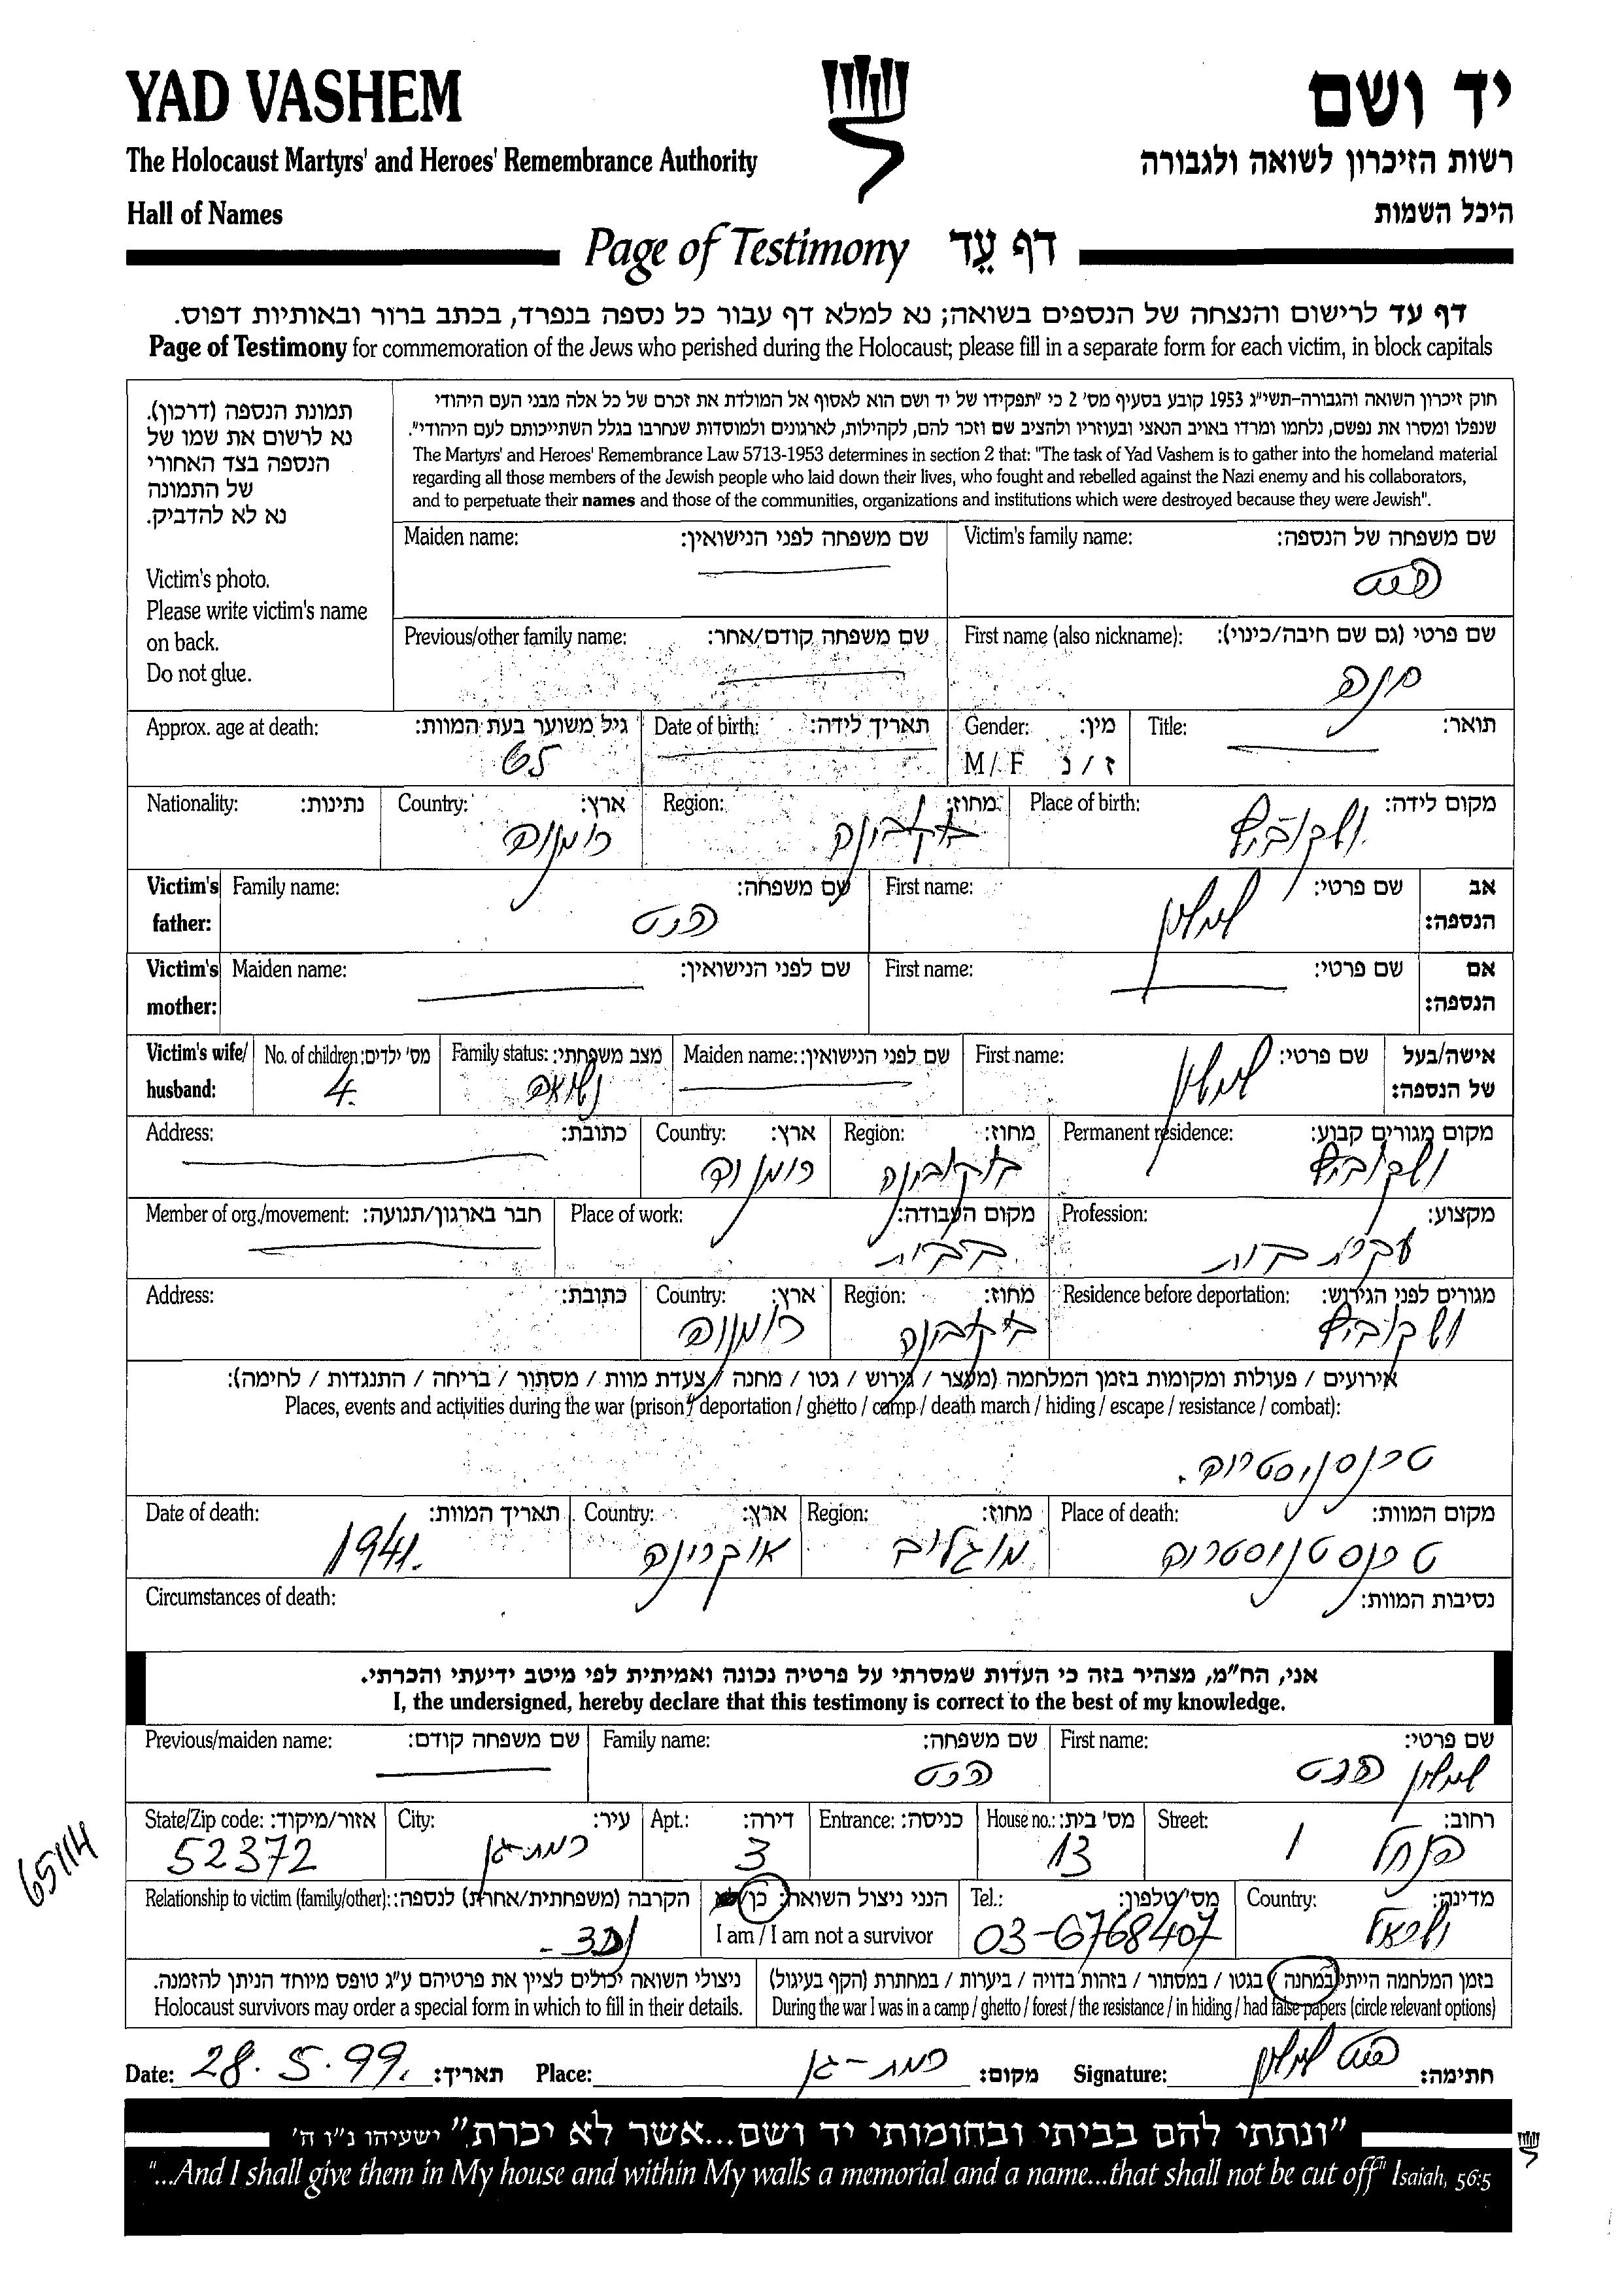 YAD VASHEM
יד ושם
The Holocaust Martyrs' and Heroes' Remembrance Authority
רשות הזיכרון לשואה ולגבורה
Hall of Names
היכל השמות
Page of Testimony דף עֵד
דף עד לרישום והנצחה של הנספים בשואה; נא למלא דף עבור כל נספה בנפרד, בכתב ברור ובאותיות דפוס.
Page of Testimony for commemoration of the Jews who perished during the Holocaust; please fill in a separate form for each victim, in block capitals
תמונת הנספה (דרכון).
נא לרשום את שמו של
הנספה בצד האחורי
של התמונה
נא לא להדביק.
Victim's photo.
Please write victim's name
on back.
Do not glue.
חוק זיכרון השואה והגבורה-תשי"ג 1953 קובע בסעיף מס' 2 כי "תפקידו של יד ושם הוא לאסוף אל המולדת את זכרם של כל אלה מבני העם היהודי
שנפלו ומסרו את נפשם, נלחמו ומרדו באויב הנאצי ובעוזריו ולהציב שם וזכר להם, לקהילות, לארגונים ולמוסדות שנחרבו בגלל השתייכותם לעם היהודי".
The Martyrs' and Heroes' Remembrance Law 5713-1953 determines in section 2 that: "The task of Yad Vashem is to gather into the homeland material
regarding all those members of the Jewish people who laid down their lives, who fought and rebelled against the Nazi enemy and his collaborators,
and to perpetuate their names and those of the communities, organizations and institutions which were destroyed because they were Jewish".
Victim's family name: שם משפחה של הנספה:
Maiden name: שם משפחה לפני הנישואין:
First name (also nickname): שם פרטי (גם שם חיבה/כינוי):
חנה
Previous/other family name: שם משפחה קודם/אחר:
Title: תואר:
Gender: מין:
M / F ז / נ
Date of birth: תאריך לידה:
Approx. age at death: גיל משוער בעת המוות:
65
Place of birth: מקום לידה:
ושקוביץ
Region: מחוז:
בוקובינה
Country: ארץ:
רומניה
Nationality: נתינות:
Victim's father: אב הנספה:
First name: שם פרטי:
Family name: שם משפחה:
Victim's mother: אם הנספה:
First name: שם פרטי:
Maiden name: שם לפני הנישואין:
Victim's wife/ husband: אישה/בעל של הנספה:
First name: שם פרטי:
Maiden name: שם לפני הנישואין:
Family status: מצב משפחתי:
נשואה
No. of children: מס' ילדים:
4.
Permanent residence: מקום מגורים קבוע:
ושקוביץ
Region: מחוז:
בוקובינה
Country: ארץ:
רומניה
Address: כתובת:
Profession: מקצוע:
עקרת בית
Place of work: מקום העבודה:
בבית
Member of org./movement: חבר בארגון/תנועה:
Residence before deportation: מגורים לפני הגירוש:
ושקוביץ
Region: מחוז:
בוקובינה
Country: ארץ:
רומניה
Address: כתובת:
אירועים / פעולות ומקומות בזמן המלחמה (מעצר / גירוש / גטו / מחנה / צעדת מוות / מסתור / בריחה / התנגדות / לחימה):
Places, events and activities during the war (prison / deportation / ghetto / camp / death march / hiding / escape / resistance / combat):
טרנסניסטריה.
Place of death: מקום המוות:
טרנסטניסטריה
Region: מחוז:
מוגליב
Country: ארץ:
אוקרינה
Date of death: תאריך המוות:
1941.
Circumstances of death: נסיבות המוות:
אני, הח"מ, מצהיר בזה כי העדות שמסרתי על פרטיה נכונה ואמיתית לפי מיטב ידיעתי והכרתי.
I, the undersigned, hereby declare that this testimony is correct to the best of my knowledge.
First name: שם פרטי:
Family name: שם משפחה:
Previous/maiden name: שם משפחה קודם:
Street: רחוב:
הנחל 1
House no.: מס' בית:
13
Entrance: כניסה:
Apt.: דירה:
3
City: עיר:
רמת-גן
State/Zip code: אזור/מיקוד:
52372
65114
Country: מדינה:
ישראל
Tel.: מס' טלפון:
03-6768407
הנני ניצול השואה: כן/
I am / I am not a survivor
Relationship to victim (family/other): הקרבה (משפחתית/אחרת) לנספה:
נכד-
בזמן המלחמה הייתי במחנה / בגטו / במסתור / בזהות בדויה / ביערות / במחתרת (הקף בעיגול)
During the war I was in a camp / ghetto / forest / the resistance / in hiding / had false papers (circle relevant options)
ניצולי השואה יכולים לציין את פרטיהם ע"ג טופס מיוחד הניתן להזמנה.
Holocaust survivors may order a special form in which to fill in their details.
Date: 28.5.99. תאריך: Place: רמת-גן מקום: Signature: חתימה:
"ונתתי להם בביתי ובחומותי יד ושם...אשר לא יכרת" ישעיהו נ"ו ה'
"...And I shall give them in My house and within My walls a memorial and a name...that shall not be cut off" Isaiah, 56:5